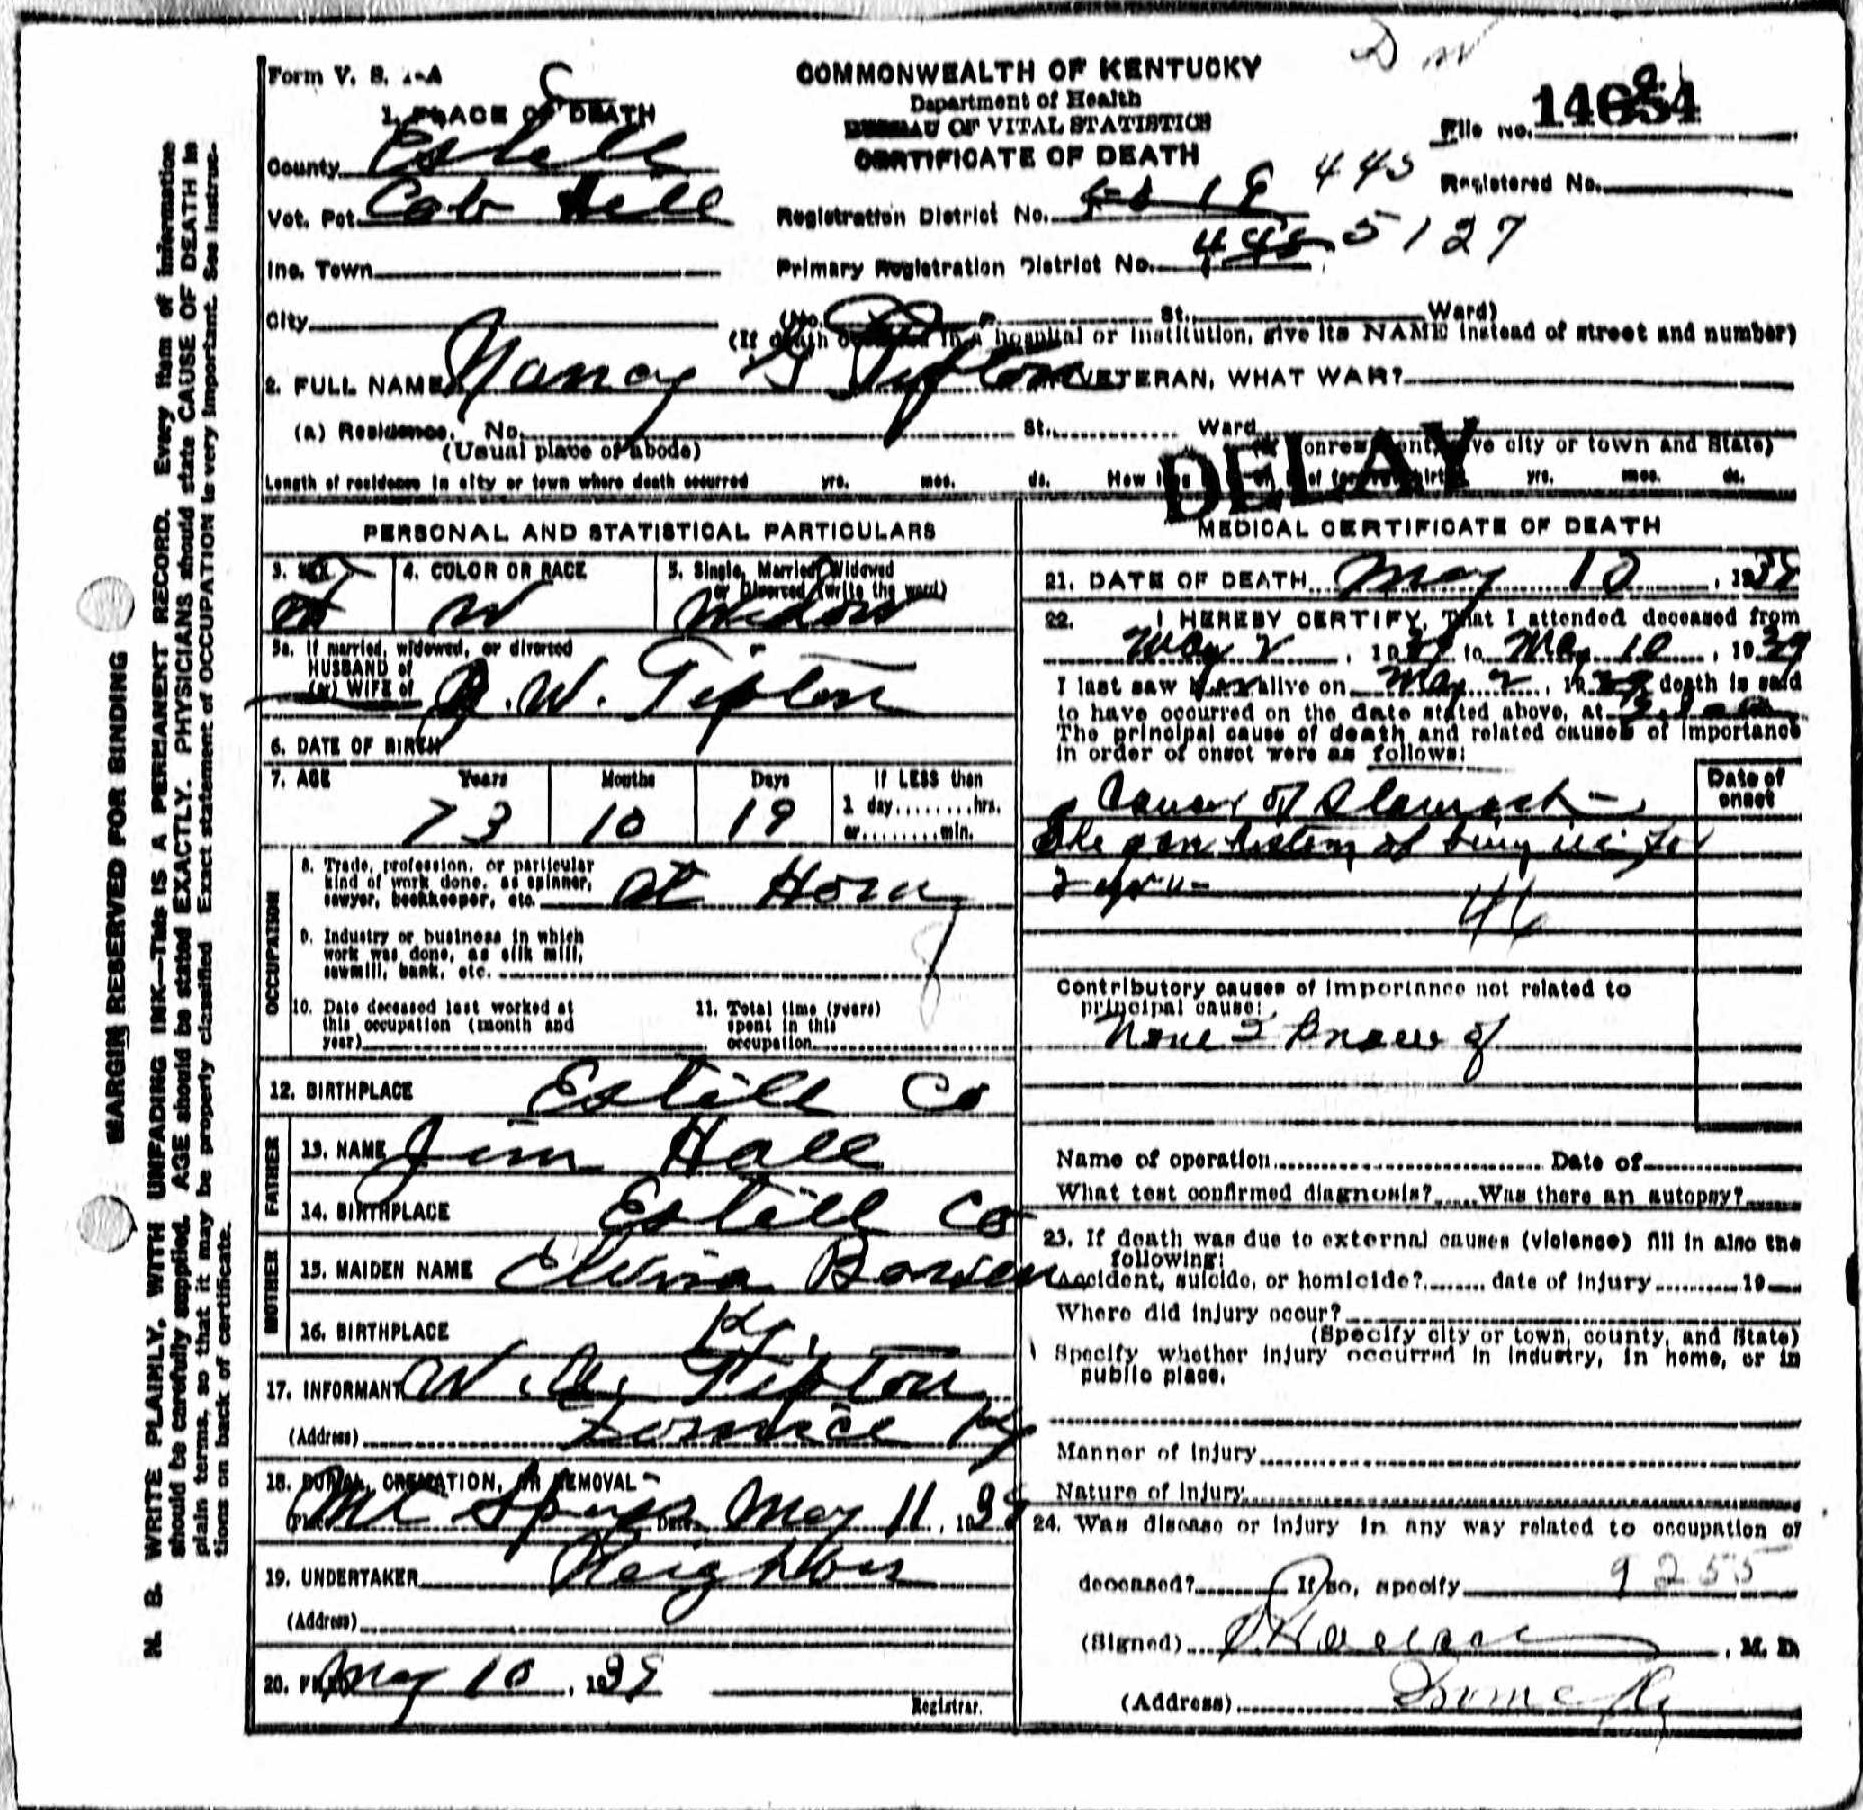 Form V. S. 1-A
COMMONWEALTH OF KENTUCKY
Department of Health
BUREAU OF VITAL STATISTICS
CERTIFICATE OF DEATH
File No.
Registered No.
1. PLACE OF DEATH
County Estill
Vot. Pct. Cob Hill
Registration District No. 445
Inc. Town
Primary Registration District No. 445 5127
City (No. St. Ward)
(If death occurred in a hospital or institution, give its NAME instead of street and number)
2. FULL NAME Nancy Tipton VETERAN, WHAT WAR?
(a) Residence. No. St. Ward
(Usual place of abode) (If nonresident, give city or town and State)
DELAY
Length of residence in city or town where death occurred yrs. mos. ds. How long in U. S. if of foreign birth? yrs. mos. ds.
PERSONAL AND STATISTICAL PARTICULARS
3. SEX
4. COLOR OR RACE W
5. Single, Married, Widowed or Divorced (write the word) Widow
5a. If married, widowed, or divorced
HUSBAND of
(or) WIFE of J. W. Tipton
6. DATE OF BIRTH
7. AGE Years Months Days If LESS than
73 10 19 1 day........hrs.
or........min.
OCCUPATION
8. Trade, profession, or particular
kind of work done, as spinner,
sawyer, bookkeeper, etc. at Home
9. Industry or business in which
work was done, as silk mill,
sawmill, bank, etc.
10. Date deceased last worked at
this occupation (month and
year)
11. Total time (years)
spent in this
occupation
12. BIRTHPLACE Estill Co
FATHER
13. NAME Jim Hall
14. BIRTHPLACE Estill Co
MOTHER
15. MAIDEN NAME Elvina Bowen
16. BIRTHPLACE Ky.
17. INFORMANT Tipton
(Address) Ky
18. BURIAL, CREMATION, OR REMOVAL
Place Mt Springs Date May 11, 1939
19. UNDERTAKER Neighbors
(Address)
20. FILED May 10, 1939
Registrar.
MEDICAL CERTIFICATE OF DEATH
21. DATE OF DEATH May 10, 1939
22. I HEREBY CERTIFY, That I attended deceased from
May 2, 1939 to May 10, 1939
I last saw her alive on May 2, 1939 death is said
to have occurred on the date stated above, at
The principal cause of death and related causes of importance
in order of onset were as follows:
Date of onset
Cancer of Stomach
She gave history of being sick for
2 years
46
Contributory causes of importance not related to
principal cause:
None I know of
Name of operation Date of
What test confirmed diagnosis? Was there an autopsy?
23. If death was due to external causes (violence) fill in also the
following:
Accident, suicide, or homicide? date of injury 19
Where did injury occur?
(Specify city or town, county, and State)
Specify whether injury occurred in industry, in home, or in
public place.
Manner of injury
Nature of injury
24. Was disease or injury in any way related to occupation of
deceased? If so, specify 9255
(Signed) , M. D.
(Address) Ky
MARGIN RESERVED FOR BINDING
N. B. WRITE PLAINLY, WITH UNFADING INK—This IS A PERMANENT RECORD. Every item of information
should be carefully supplied. AGE should be stated EXACTLY. PHYSICIANS should state CAUSE OF DEATH in
plain terms, so that it may be properly classified. Exact statement of OCCUPATION is very important. See instruc-
tions on back of certificate.